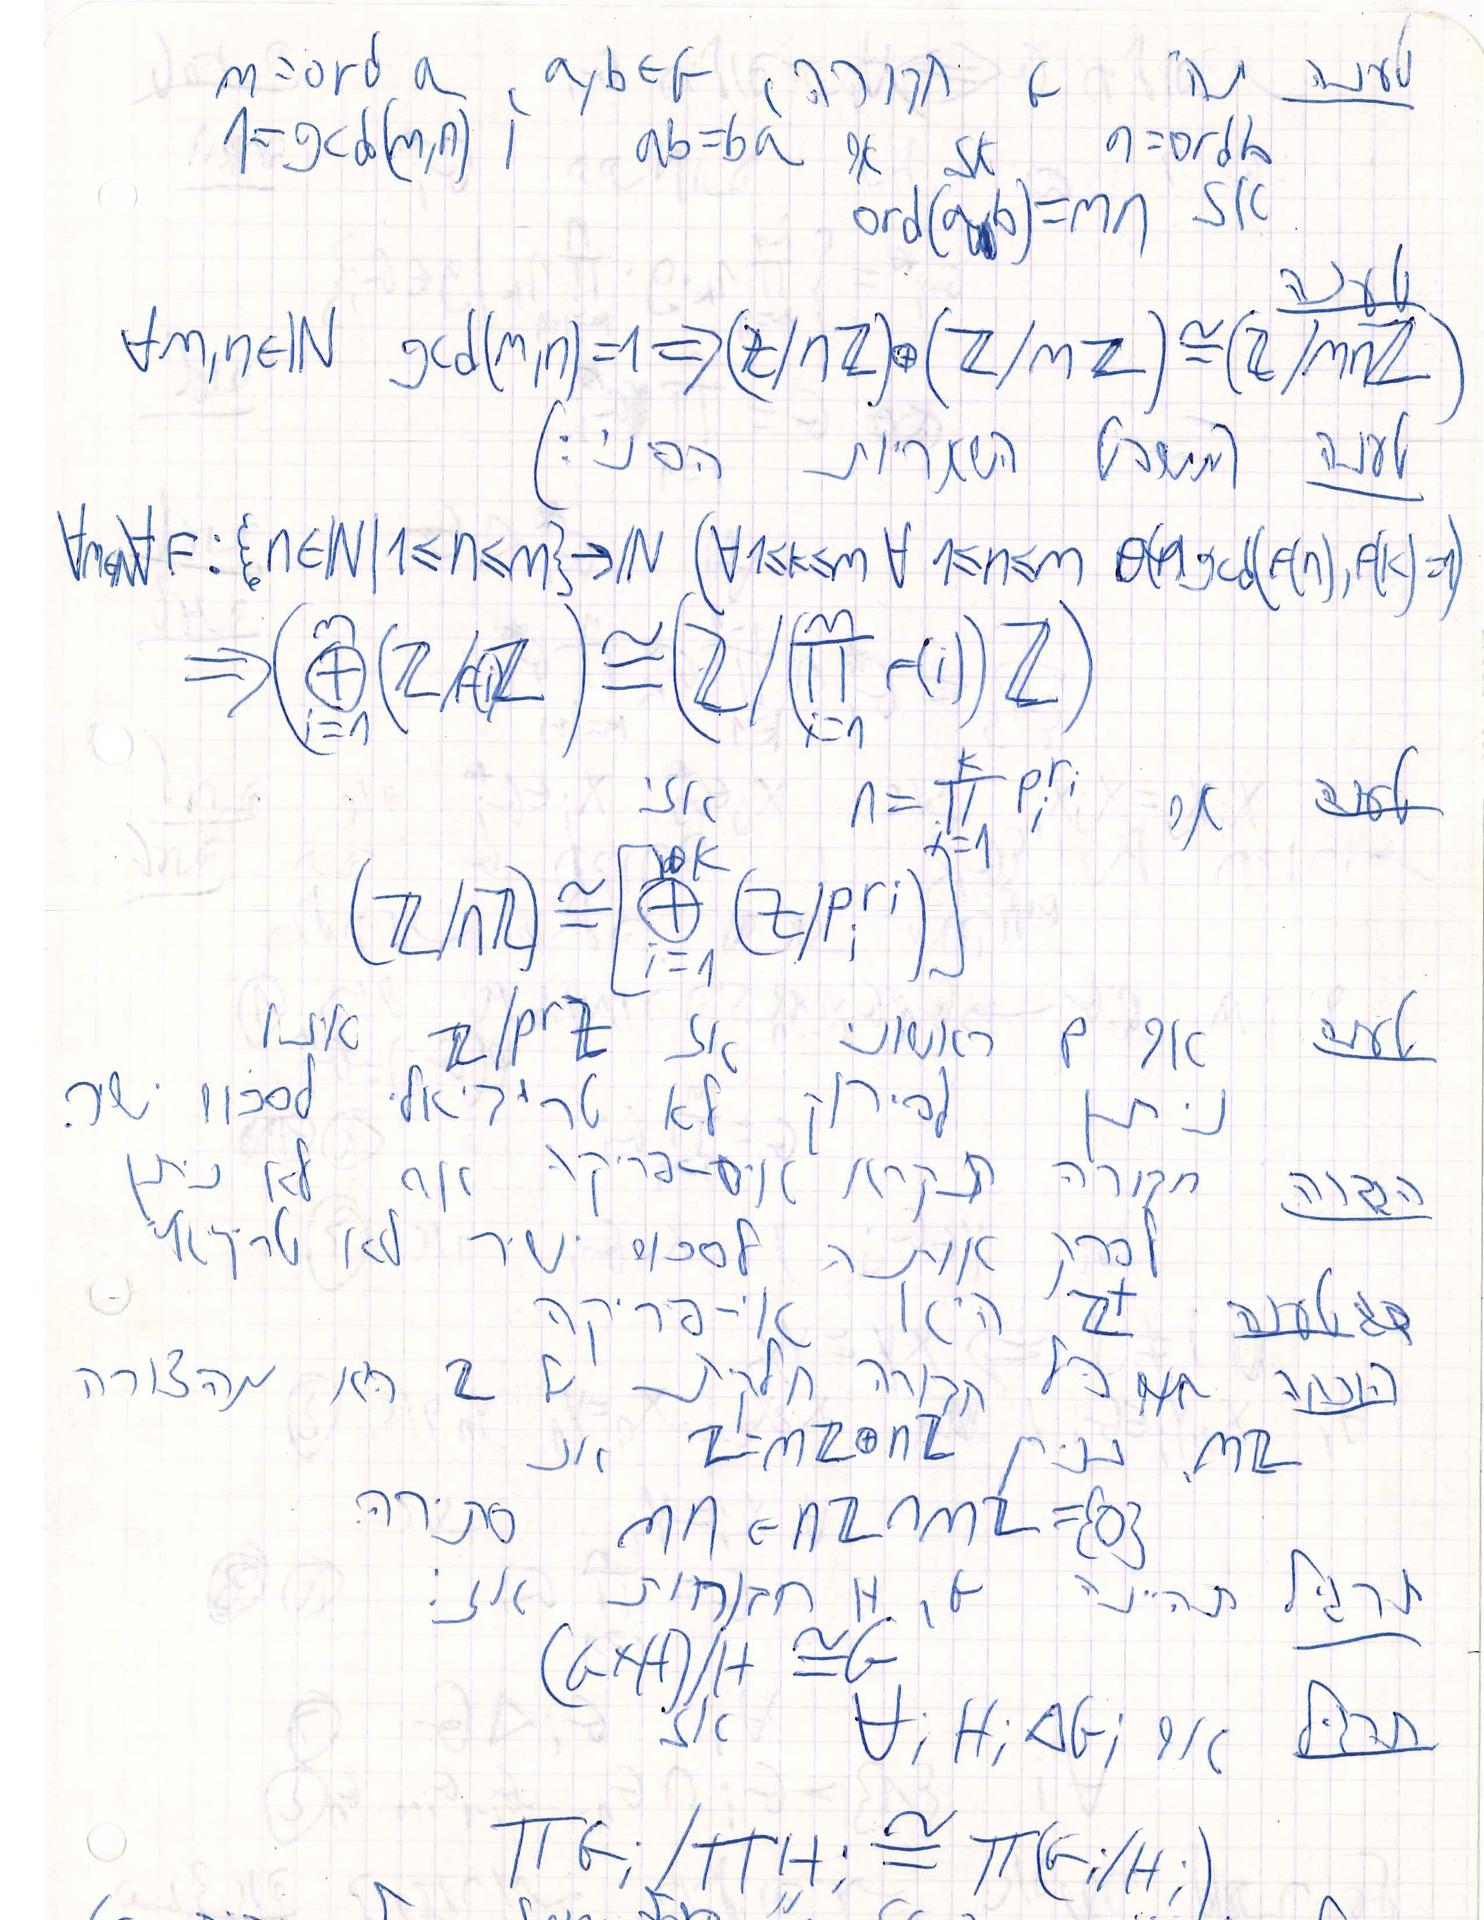 טענה תהי G חבורה, a,b∈G, m=ord a
n=ord b אז אם ab=ba ו 1=gcd(m,n)
אז ord(ab)=mn
טענה
∀m,n∈ℕ gcd(m,n)=1 ⇒ (ℤ/nℤ)⊕(ℤ/mℤ)≅(ℤ/mnℤ)
טענה (משפט השאריות הסיני:)
∀m∈ℕ ∀F:{n∈ℕ|1≤n≤m}→ℕ (∀1≤k≤m ∀1≤n≤m gcd(F(n),F(k))=1)
⇒(⊕_{i=1}^{m}(ℤ/F(i)ℤ)≅(ℤ/(∏_{i=1}^{m} F(i))ℤ)
טענה אם n=∏_{i=1}^{k} p_i^{r_i} אזי
(ℤ/nℤ)≅[⊕_{i=1}^{k}(ℤ/p_i^{r_i})]
טענה אם p ראשוני אז ℤ/p^rℤ אינו
ניתן לפירוק לא טריביאלי לסכום ישר.
הגדרה חבורה תקרא אי-פריקה אם לא ניתן
לפרק אותה לסכום ישיר לא טריויאלי
טענה ℤ⁺ היא אי-פריקה
הוכחה כל חבורה חלקית של ℤ היא מהצורה
mℤ. נניח ℤ=mℤ⊕nℤ אז
mn∈nℤ∩mℤ={0} סתירה.
תרגיל תהיינה G, H חבורות אזי:
(G×H)/H≅G
תרגיל אם ∀i H_i△G_i אז
∏G_i/∏H_i≅∏(G_i/H_i)